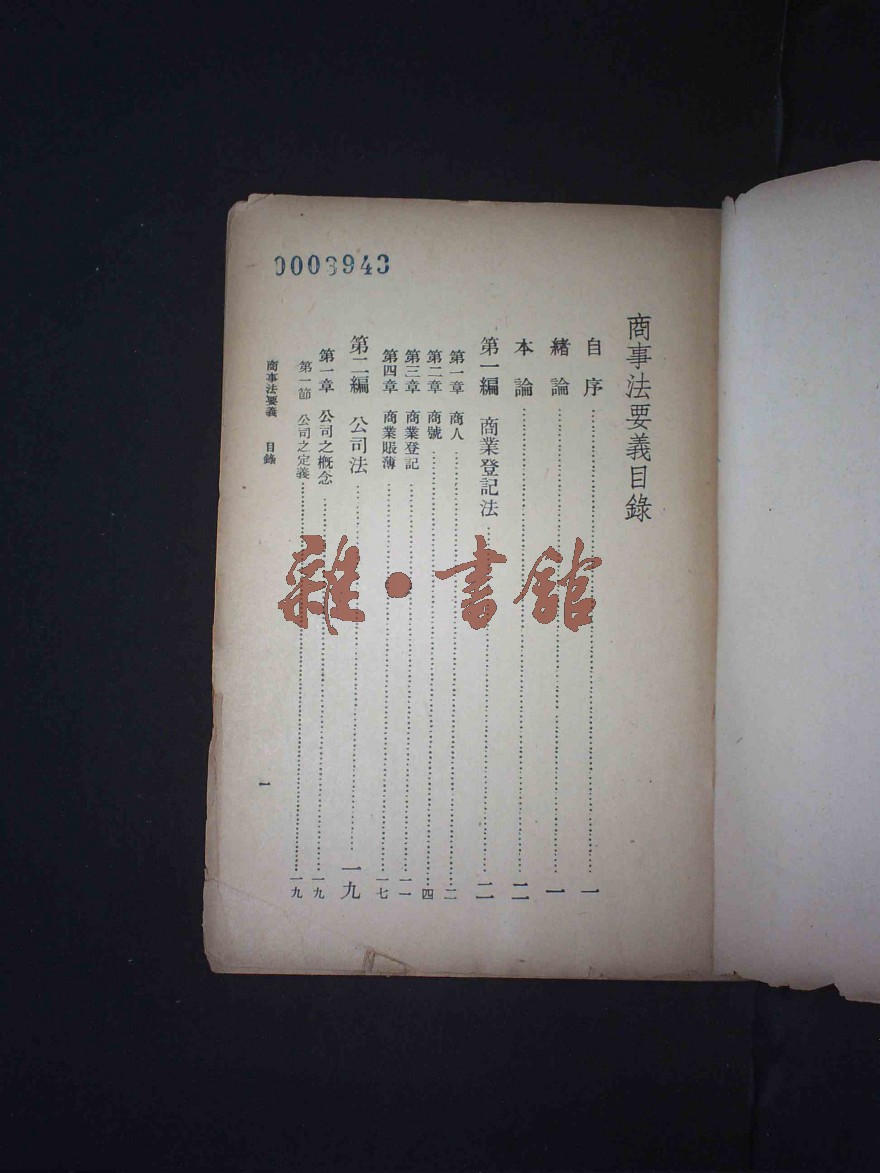 0003943
商事法要義目錄
自序 一
緒論 一
本論 二
第一編 商業登記法 二
第一章 商人 二
第二章 商號 四
第三章 商業登記 一一
第四章 商業賬薄 一七
第二編 公司法 一九
第一章 公司之概念 一九
第一節 公司之定義 一九
商事法要義 目錄
一
雜·書館